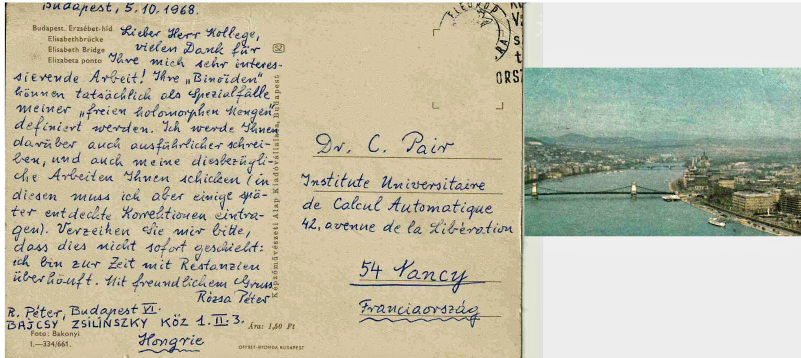 Budapest, 5.10.1968.
Budapest. Erzsébet-híd
Elisabethbrücke
Elisabeth Bridge
Elizabeta ponto
Lieber Herr Kollege,
vielen Dank für
Ihre mich sehr interes-
sierende Arbeit! Ihre „Binoiden"
können tatsächlich als Spezialfälle
meiner „freien holomorphen Mengen"
definiert werden. Ich werde Ihnen
darüber auch ausführlicher schrei-
ben, und auch meine diesbezügli-
che Arbeiten Ihnen schicken (in
diesen muss ich aber einige spä-
ter entdeckte Korrektionen eintra-
gen). Verzeihen Sie mir bitte,
dass dies nicht sofort geschieht:
ich bin zur Zeit mit Restanzien
überhäuft. Mit freundlichem Gruss
Rózsa Péter
R. Péter, Budapest VI.
BAJCSY ZSILINSZKY KÖZ 1. II. 3.
Hongrie
Foto: Bakonyi
I.—334/661.
Ára: 1,50 Ft
OFFSET-NYOMDA BUDAPEST
Képzőművészeti Alap Kiadóvállalata, Budapest
Dr. C. Pair
Institute Universitaire
de Calcul Automatique
42, avenue de la Libération
54 Nancy
Franciaország